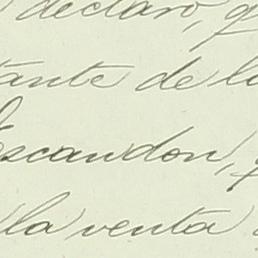 declaro, q
tante de l
Escandon, q
la venta